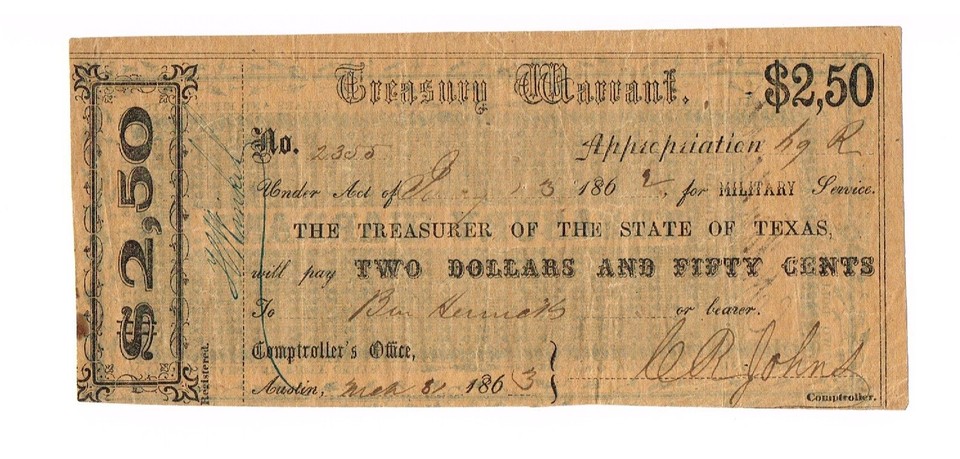 Treasury Warrant. $2,50
$2,50
No. 2355 Appropriation hg R
Under Act of 13 1862, for MILITARY Service.
THE TREASURER OF THE STATE OF TEXAS,
will pay TWO DOLLARS AND FIFTY CENTS
To Ben or bearer.
Comptroller's Office,
Austin, 1863 C R Johns
Comptroller.
Registered.